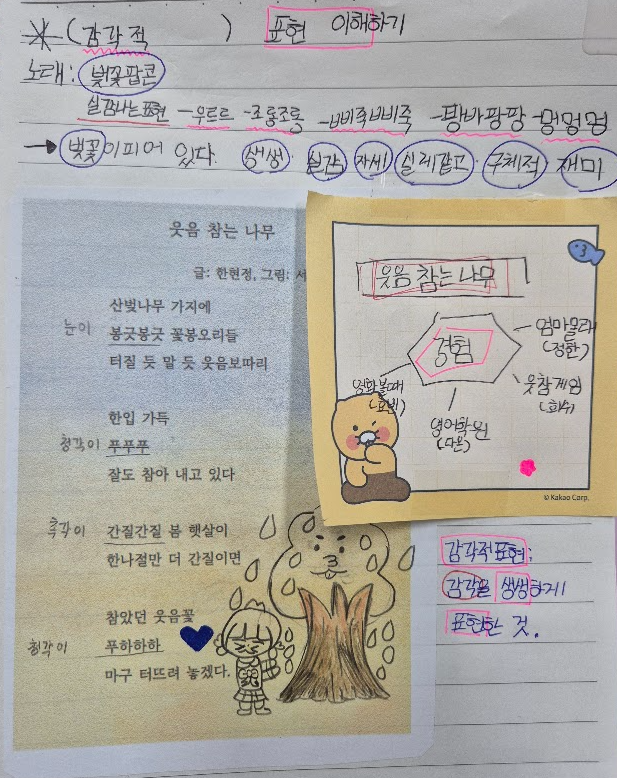 (감각적 ) 표현 이해하기
노래: 벚꽃팝콘
실감나는 표현 -우르르 -조롱조롱 -삐죽삐죽 -팡바팡팡 -멍멍멍
→ 벚꽃이피어 있다. 생생 실감 자세 실제같고 구체적 재미
웃음 참는 나무
글: 한현정, 그림: 서
산벚나무 가지에
눈이 봉긋봉긋 꽃봉오리들
터질 듯 말 듯 웃음보따리
한입 가득
청각이 푸푸푸
잘도 참아 내고 있다
촉각이 간질간질 봄 햇살이
한나절만 더 간질이면
참았던 웃음꽃
청각이 푸하하하
마구 터뜨려 놓겠다.
3
웃음 참는 나무
경험
엄마몰래
(정한)
웃참게임
영어학원
영화볼때
© Kakao Corp.
감각적표현:
감각을 생생하게
표현한 것.